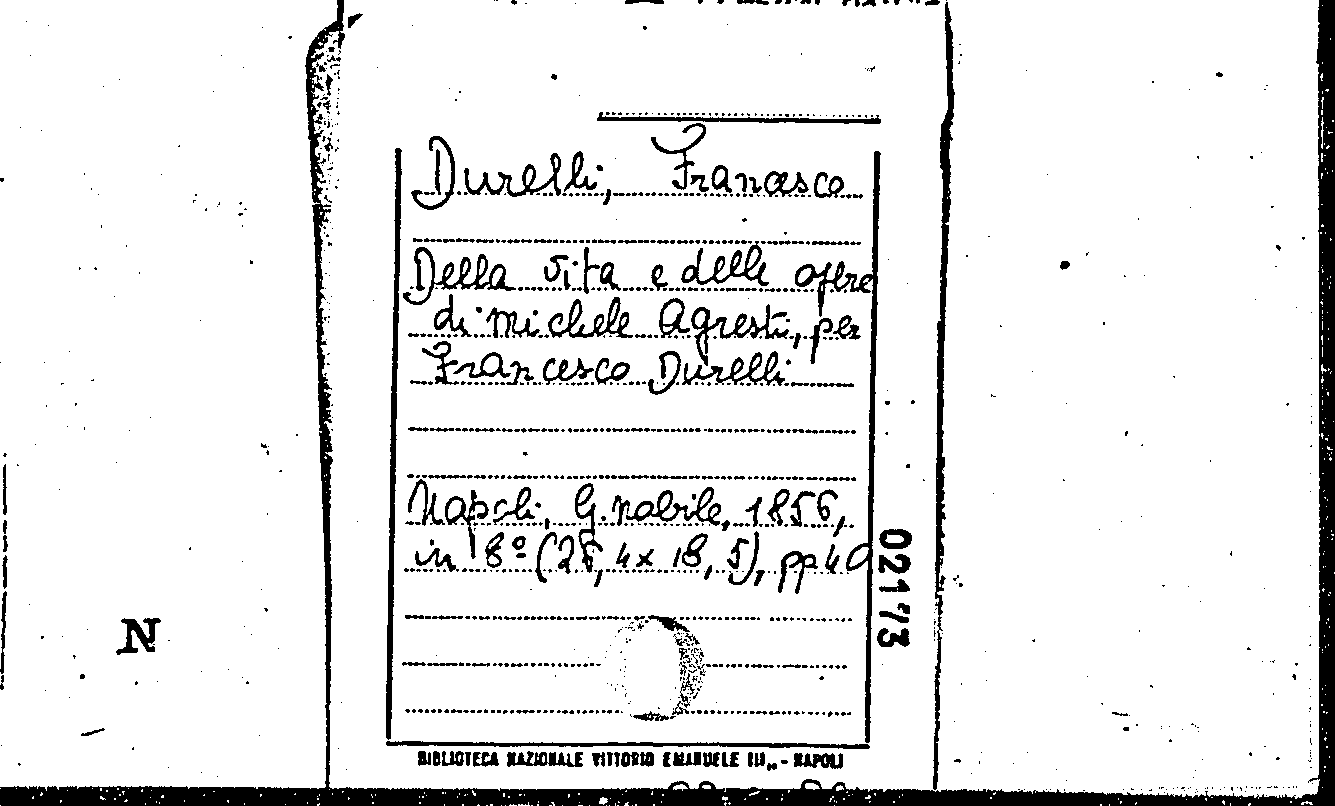 Durelli, Francesco
Della vita e delle opere
di Michele Agresti, per
Francesco Durelli
Napoli, G. Nobile, 1856,
in 8º (26,4x18,5), pp 40
02173
N
BIBLIOTECA NAZIONALE VITTORIO EMANUELE III„ - NAPOLI